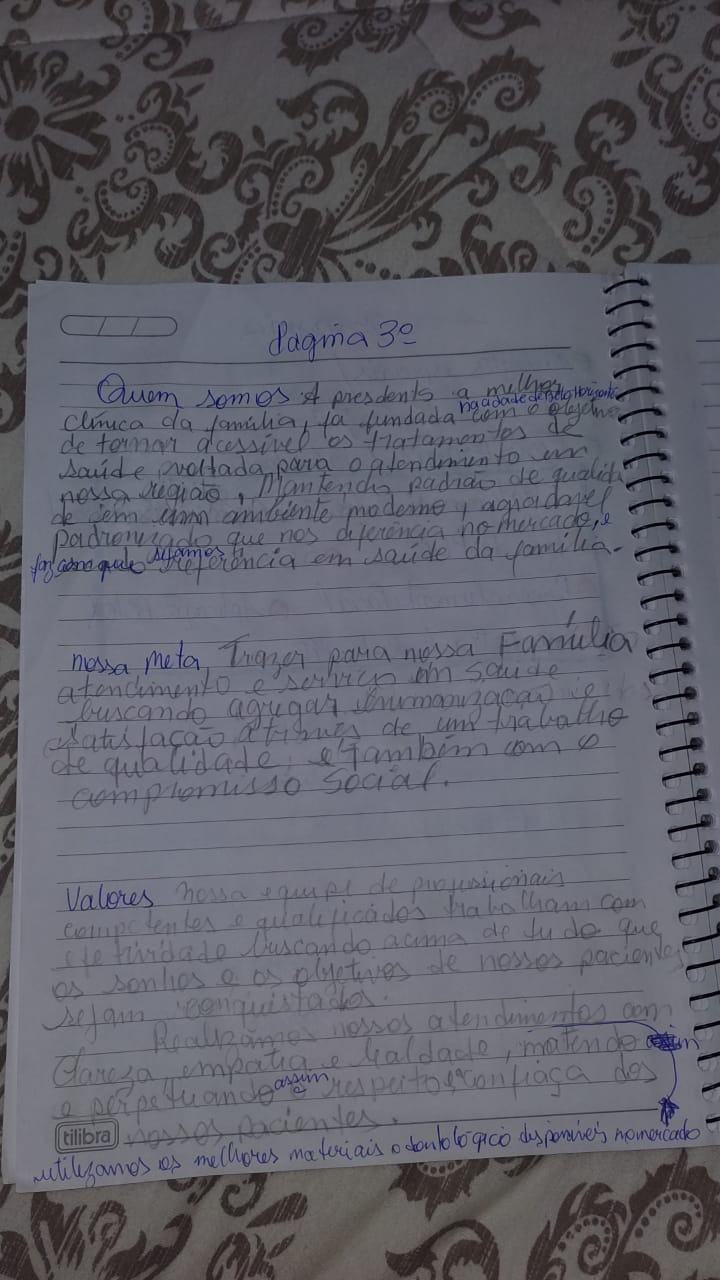 Pagina 3º
Quem somos A presdents a melhor
na cidade de Belo Horizonte
clínica da família, fa fundada com o objetivo
de tornar acessível os tratamentos de
saúde voltada para o atendimento em
nossa região, Mantendo padrão de qualida
de em um ambiente moderno, agradavel
padronizado que nos diferência no mercado, e
faz com que sejamos referência em saúde da família.
nossa meta, Trazer para nossa Família
atendimento e serviço em saúde
buscando agregar humanização e
satisfação através de um trabalho
de qualidade, e também com o
compromisso social.
Valores nossa equipe de profissionais
competentes e qualificados trabalham com
efetividade buscando acima de tudo que
os sonhos e os objetivos de nossos pacientes
sejam conquistados.
Realizamos nossos atendimentos com
Clareza empatia e lealdade, matendo
e perpetuando assim e respeito e confiaça dos
nossos pacientes.
tilibra
utilizamos os melhores materiais odontológico disponíveis no mercado